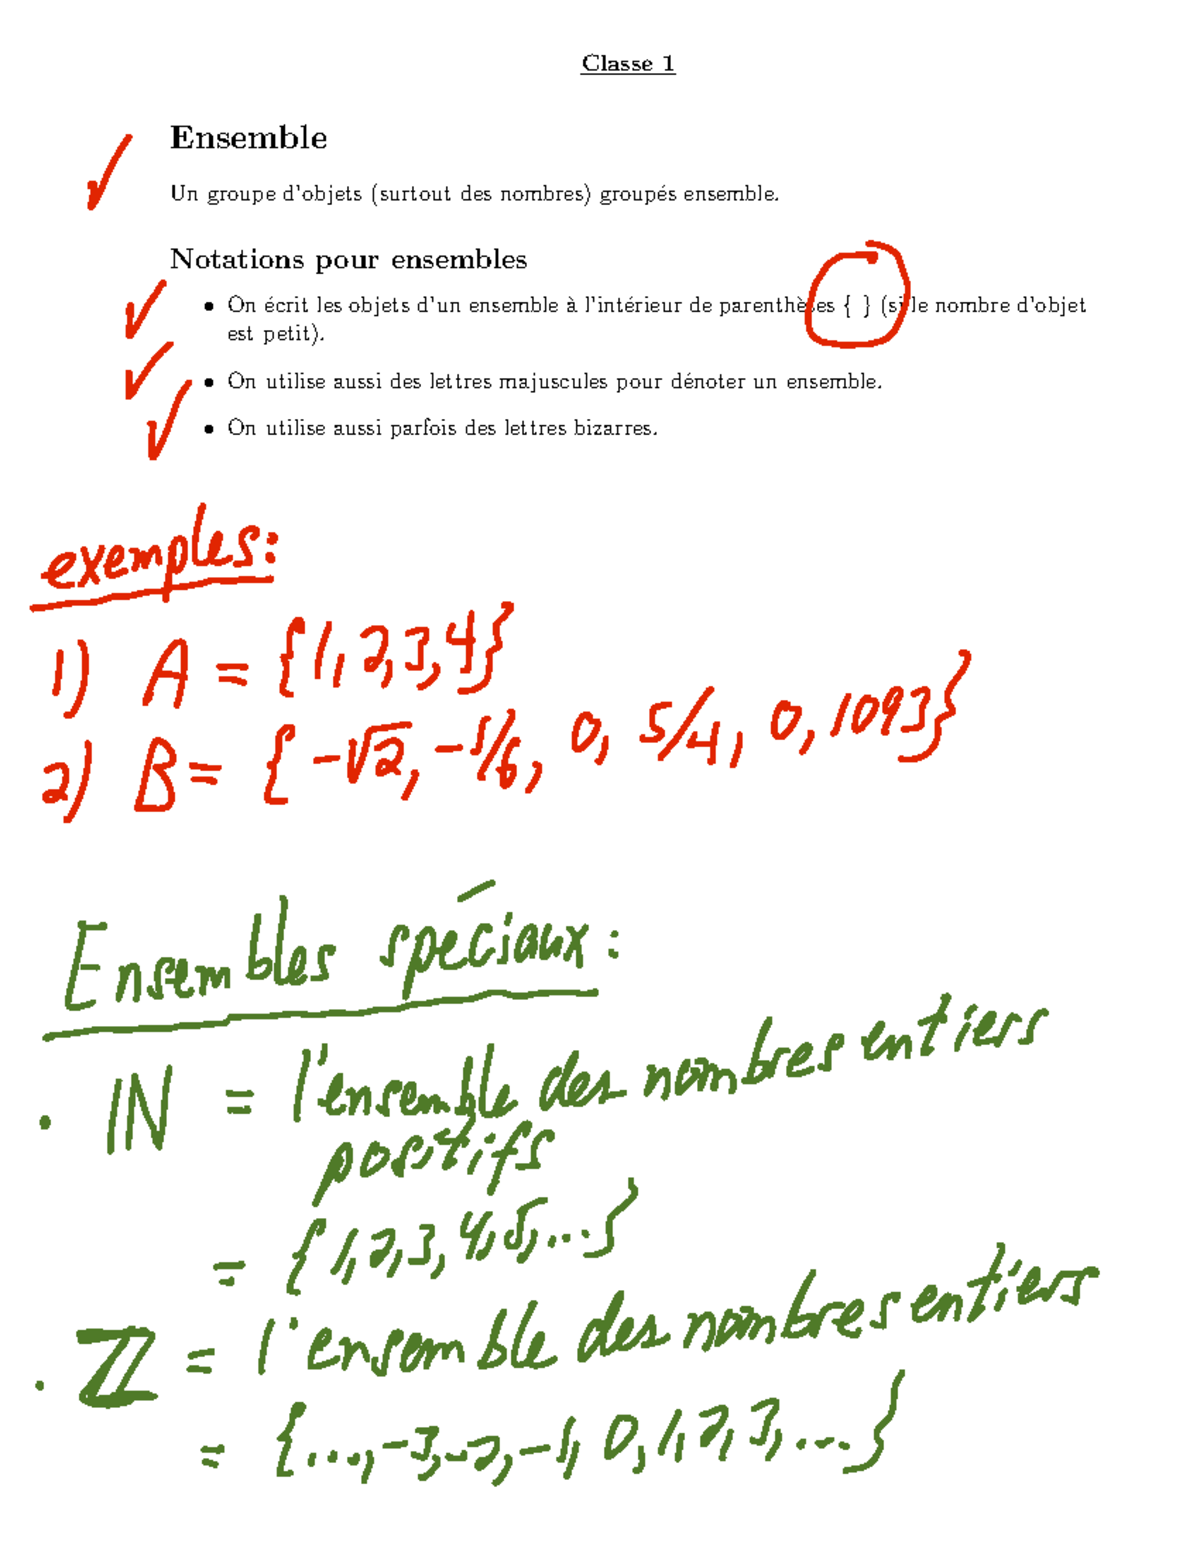 Classe 1
Ensemble
Un groupe d'objets (surtout des nombres) groupés ensemble.
Notations pour ensembles
• On écrit les objets d'un ensemble à l'intérieur de parenthèses { } (si le nombre d'objet
est petit).
• On utilise aussi des lettres majuscules pour dénoter un ensemble.
• On utilise aussi parfois des lettres bizarres.
exemples:
1) A = {1,2,3,4}
2) B = {-√2, -1/6, 0, 5/4, 0, 1093}
Ensembles spéciaux:
• ℕ = l'ensemble des nombres entiers
positifs
= {1,2,3,4,5,...}
• ℤ = l'ensemble des nombres entiers
= {...,-3,-2,-1,0,1,2,3,...}